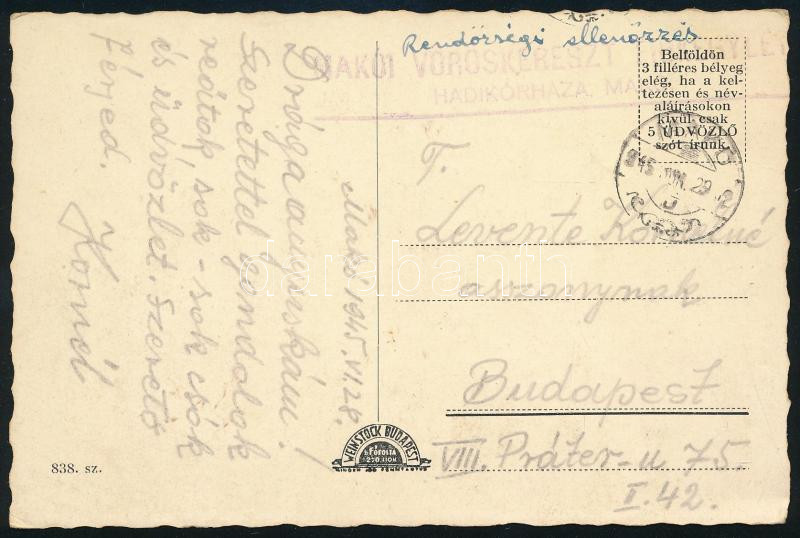 Rendőrségi ellenőrzés
MAKÓI VÖRÖSKERESZT
HADIKÓRHÁZA, MA
Belföldön
3 filléres bélyeg
elég, ha a kel-
tezésen és név-
aláírásokon
kívül csak
5 ÜDVÖZLŐ
szót írunk.
MAKÓ
945 JUN. 29
Makó 1945. VI. 28.
Drága anyuskám!
Szeretettel gondolok
reátok, sok-sok csók
és üdvözlet. Szerető
Férjed.
Kornél
T.
Levente Kornélné
asszonynak
Budapest
VIII. Práter-u 75.
I. 42.
WEINSTOCK BUDAPEST
838. sz.
darabanth